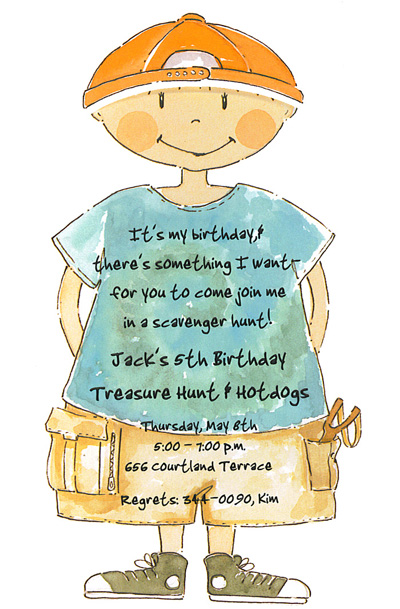 It's my birthday, &
there's something I want
for you to come join me
in a scavenger hunt!
Jack's 5th Birthday
Treasure Hunt & Hotdogs
Thursday, May 8th
5:00 - 7:00 p.m.
656 Courtland Terrace
Regrets: 344-0090, Kim